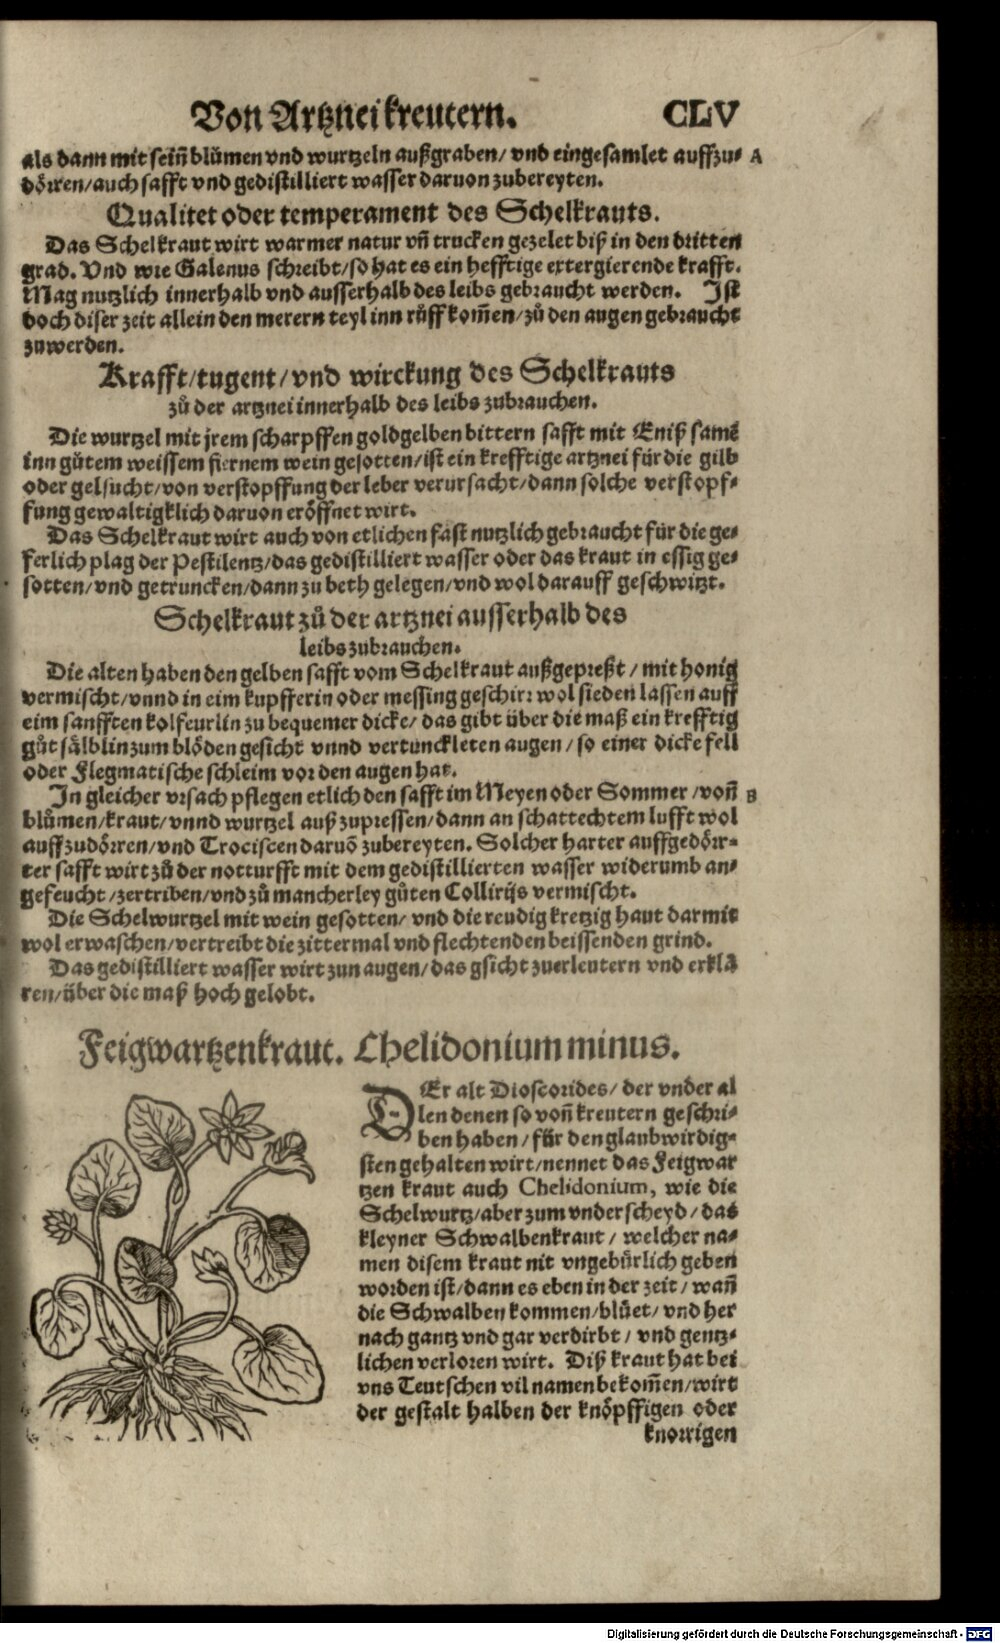 Von Artzneikreutern. CLV
als dann mit sein̄ blůmen vnd wurtzeln außgraben/ vnd eingesamlet auffzu- A
dörren/auch safft vnd gedistilliert wasser daruon zubereyten.
Qualitet oder temperament des Schelkrauts.
Das Schelkraut wirt warmer natur vn̄ trucken gezelet biß in den dritten
grad. Vnd wie Galenus schreibt/so hat es ein hefftige extergierende krafft.
Mag nutzlich innerhalb vnd ausserhalb des leibs gebraucht werden. Ist
doch diser zeit allein den merern teyl inn růff kom̄en/zů den augen gebraucht
zuwerden.
Krafft/tugent/vnd wirckung des Schelkrauts
zů der artznei innerhalb des leibs zubrauchen.
Die wurtzel mit jrem scharpffen goldgelben bittern safft mit Eniß samē
inn gůtem weissem fiernem wein gesotten/ist ein krefftige artznei für die gilb
oder gelsucht/von verstopffung der leber verursacht/dann solche verstopf-
fung gewaltigklich daruon eröffnet wirt.
Das Schelkraut wirt auch von etlichen fast nutzlich gebraucht für die ge-
ferlich plag der Pestilentz/das gedistilliert wasser oder das kraut in essig ge-
sotten/vnd getruncken/dann zu beth gelegen/vnd wol darauff geschwitzt.
Schelkraut zů der artznei ausserhalb des
leibs zubrauchen.
Die alten haben den gelben safft vom Schelkraut außgepreßt/ mit honig
vermischt/vnnd in eim kupfferin oder messing geschirr wol sieden lassen auff
eim sanfften kolfeurlin zu bequemer dicke/ das gibt über die maß ein krefftig
gůt sälblin zum blöden gesicht vnnd vertunckleten augen/ so einer dicke fell
oder Flegmatische schleim vor den augen hat.
In gleicher vrsach pflegen etlich den safft im Meyen oder Sommer/von̄ B
blůmen/kraut/vnnd wurtzel auß zupressen/dann an schattechtem lufft wol
auffzudörren/vnd Trociscen daruō zubereyten. Solcher harter auffgedörr-
ter safft wirt zů der notturfft mit dem gedistillierten wasser widerumb an-
gefeucht/zertriben/vnd zů mancherley gůten Collirijs vermischt.
Die Schelwurtzel mit wein gesotten/ vnd die reudig kretzig haut darmit
wol erwaschen/vertreibt die zittermal vnd flechtenden beissenden grind.
Das gedistilliert wasser wirt zun augen/das gsicht zuerleutern vnd erklä
ren/über die maß hoch gelobt.
Feigwartzenkraut. Chelidonium minus.
DEr alt Dioscorides/ der vnder al
len denen so von̄ kreutern geschri-
ben haben/für den glaubwirdig-
sten gehalten wirt/nennet das Feigwar
tzen kraut auch Chelidonium, wie die
Schelwurtz/aber zum vnderscheyd/das
kleyner Schwalbenkraut/ welcher na-
men disem kraut nit vngebürlich geben
worden ist/dann es eben in der zeit/ wan̄
die Schwalben kommen/blüet/vnd her
nach gantz vnd gar verdirbt/ vnd gentz-
lichen verloren wirt. Diß kraut hat bei
vns Teutschen vil namen bekom̄en/wirt
der gestalt halben der knöpffigen oder
knorrigen
Digitalisierung gefördert durch die Deutsche Forschungsgemeinschaft - DFG